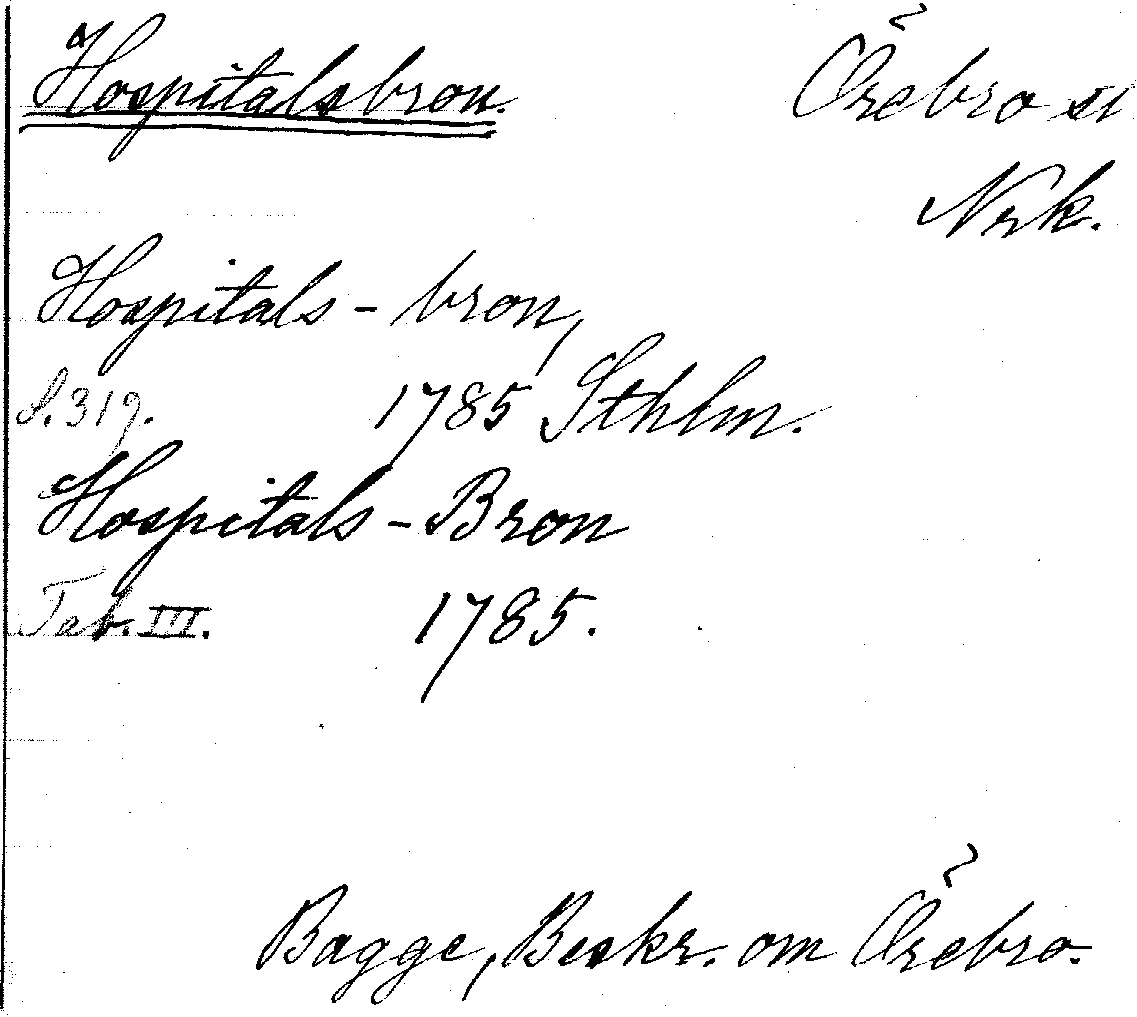 Hospitalsbron. Örebro st
Nrk.
Hospitals-bron,
S. 319. 1785 Sthlm.
Hospitals-Bron
Tab. III. 1785.
Bagge, Beskr. om Örebro.